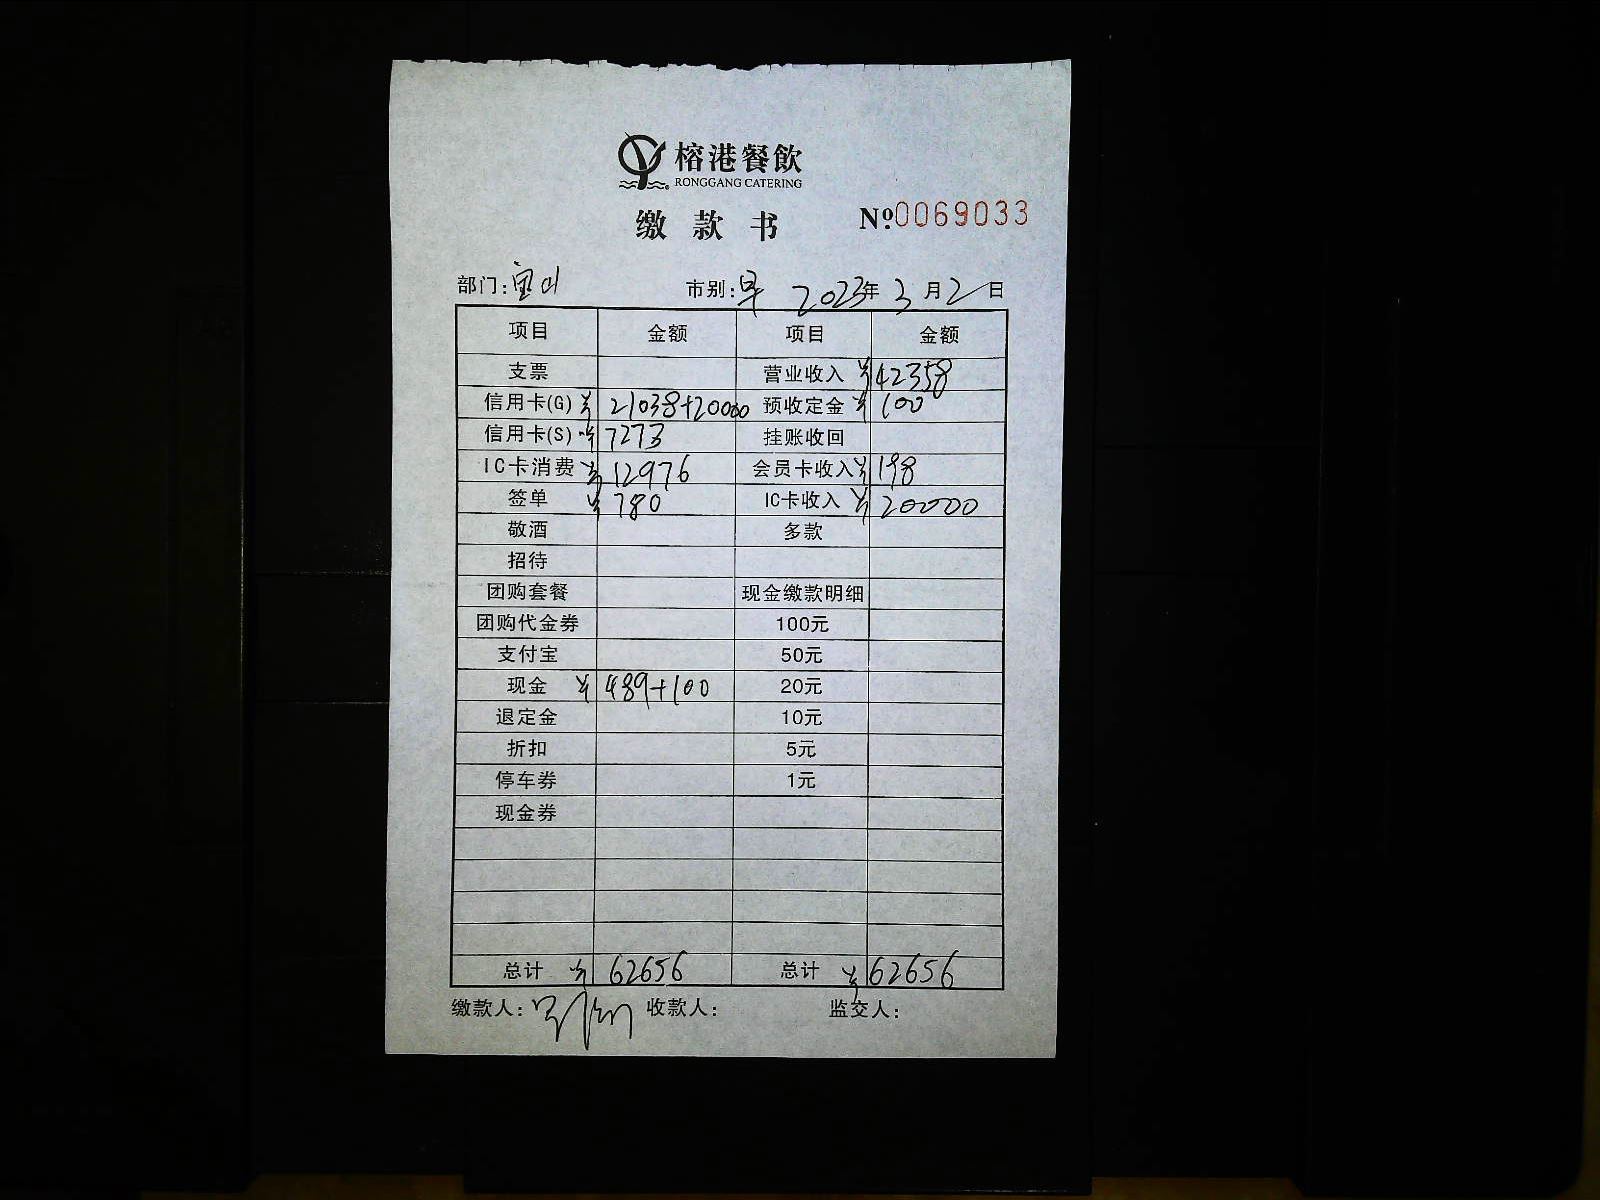 榕港餐飲
RONGGANG CATERING
缴款书 Nº0069033
部门:宝山 市别:早 2023年3月2日
项目 金额 项目 金额
支票 营业收入 ¥42358
信用卡(G) ¥21038+20000 预收定金 ¥100
信用卡(S) ¥7273 挂账收回
IC卡消费 ¥12976 会员卡收入 ¥198
签单 ¥780 IC卡收入 ¥20000
敬酒 多款
招待
团购套餐 现金缴款明细
团购代金券 100元
支付宝 50元
现金 ¥489+100 20元
退定金 10元
折扣 5元
停车券 1元
现金券
总计 ¥62656 总计 ¥62656
缴款人: 收款人: 监交人: